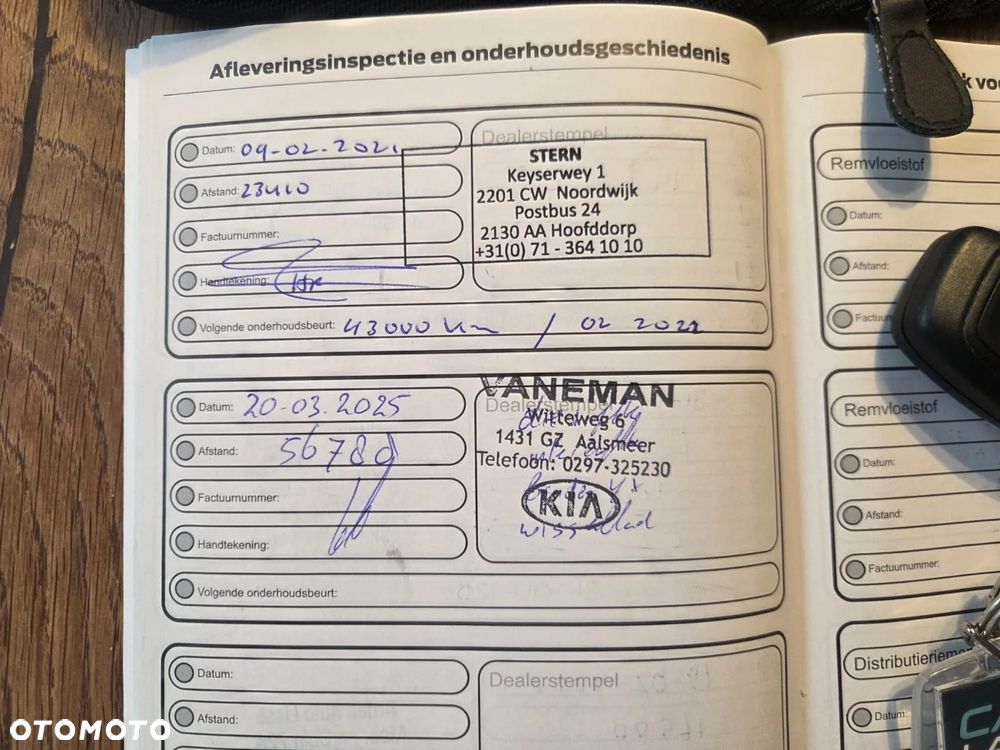 Afleveringsinspectie en onderhoudsgeschiedenis
Datum: 09-02-2021
Afstand: 23410
Factuurnummer:
Handtekening:
Volgende onderhoudsbeurt: 43000 km / 02 2022
Dealerstempel
STERN
Keyserwey 1
2201 CW Noordwijk
Postbus 24
2130 AA Hoofddorp
+31(0) 71 - 364 10 10
Datum: 20-03-2025
Afstand: 56788
Factuurnummer:
Handtekening:
Volgende onderhoudsbeurt:
VANEMAN
Dealerstempel
Witteweg 6
1431 GZ Aalsmeer
Telefoon: 0297-325230
KIA
Datum:
Afstand:
Dealerstempel
Remvloeistof
Datum:
Afstand:
Remvloeistof
Datum:
Afstand:
Factuurnummer:
Datum:
OTOMOTO